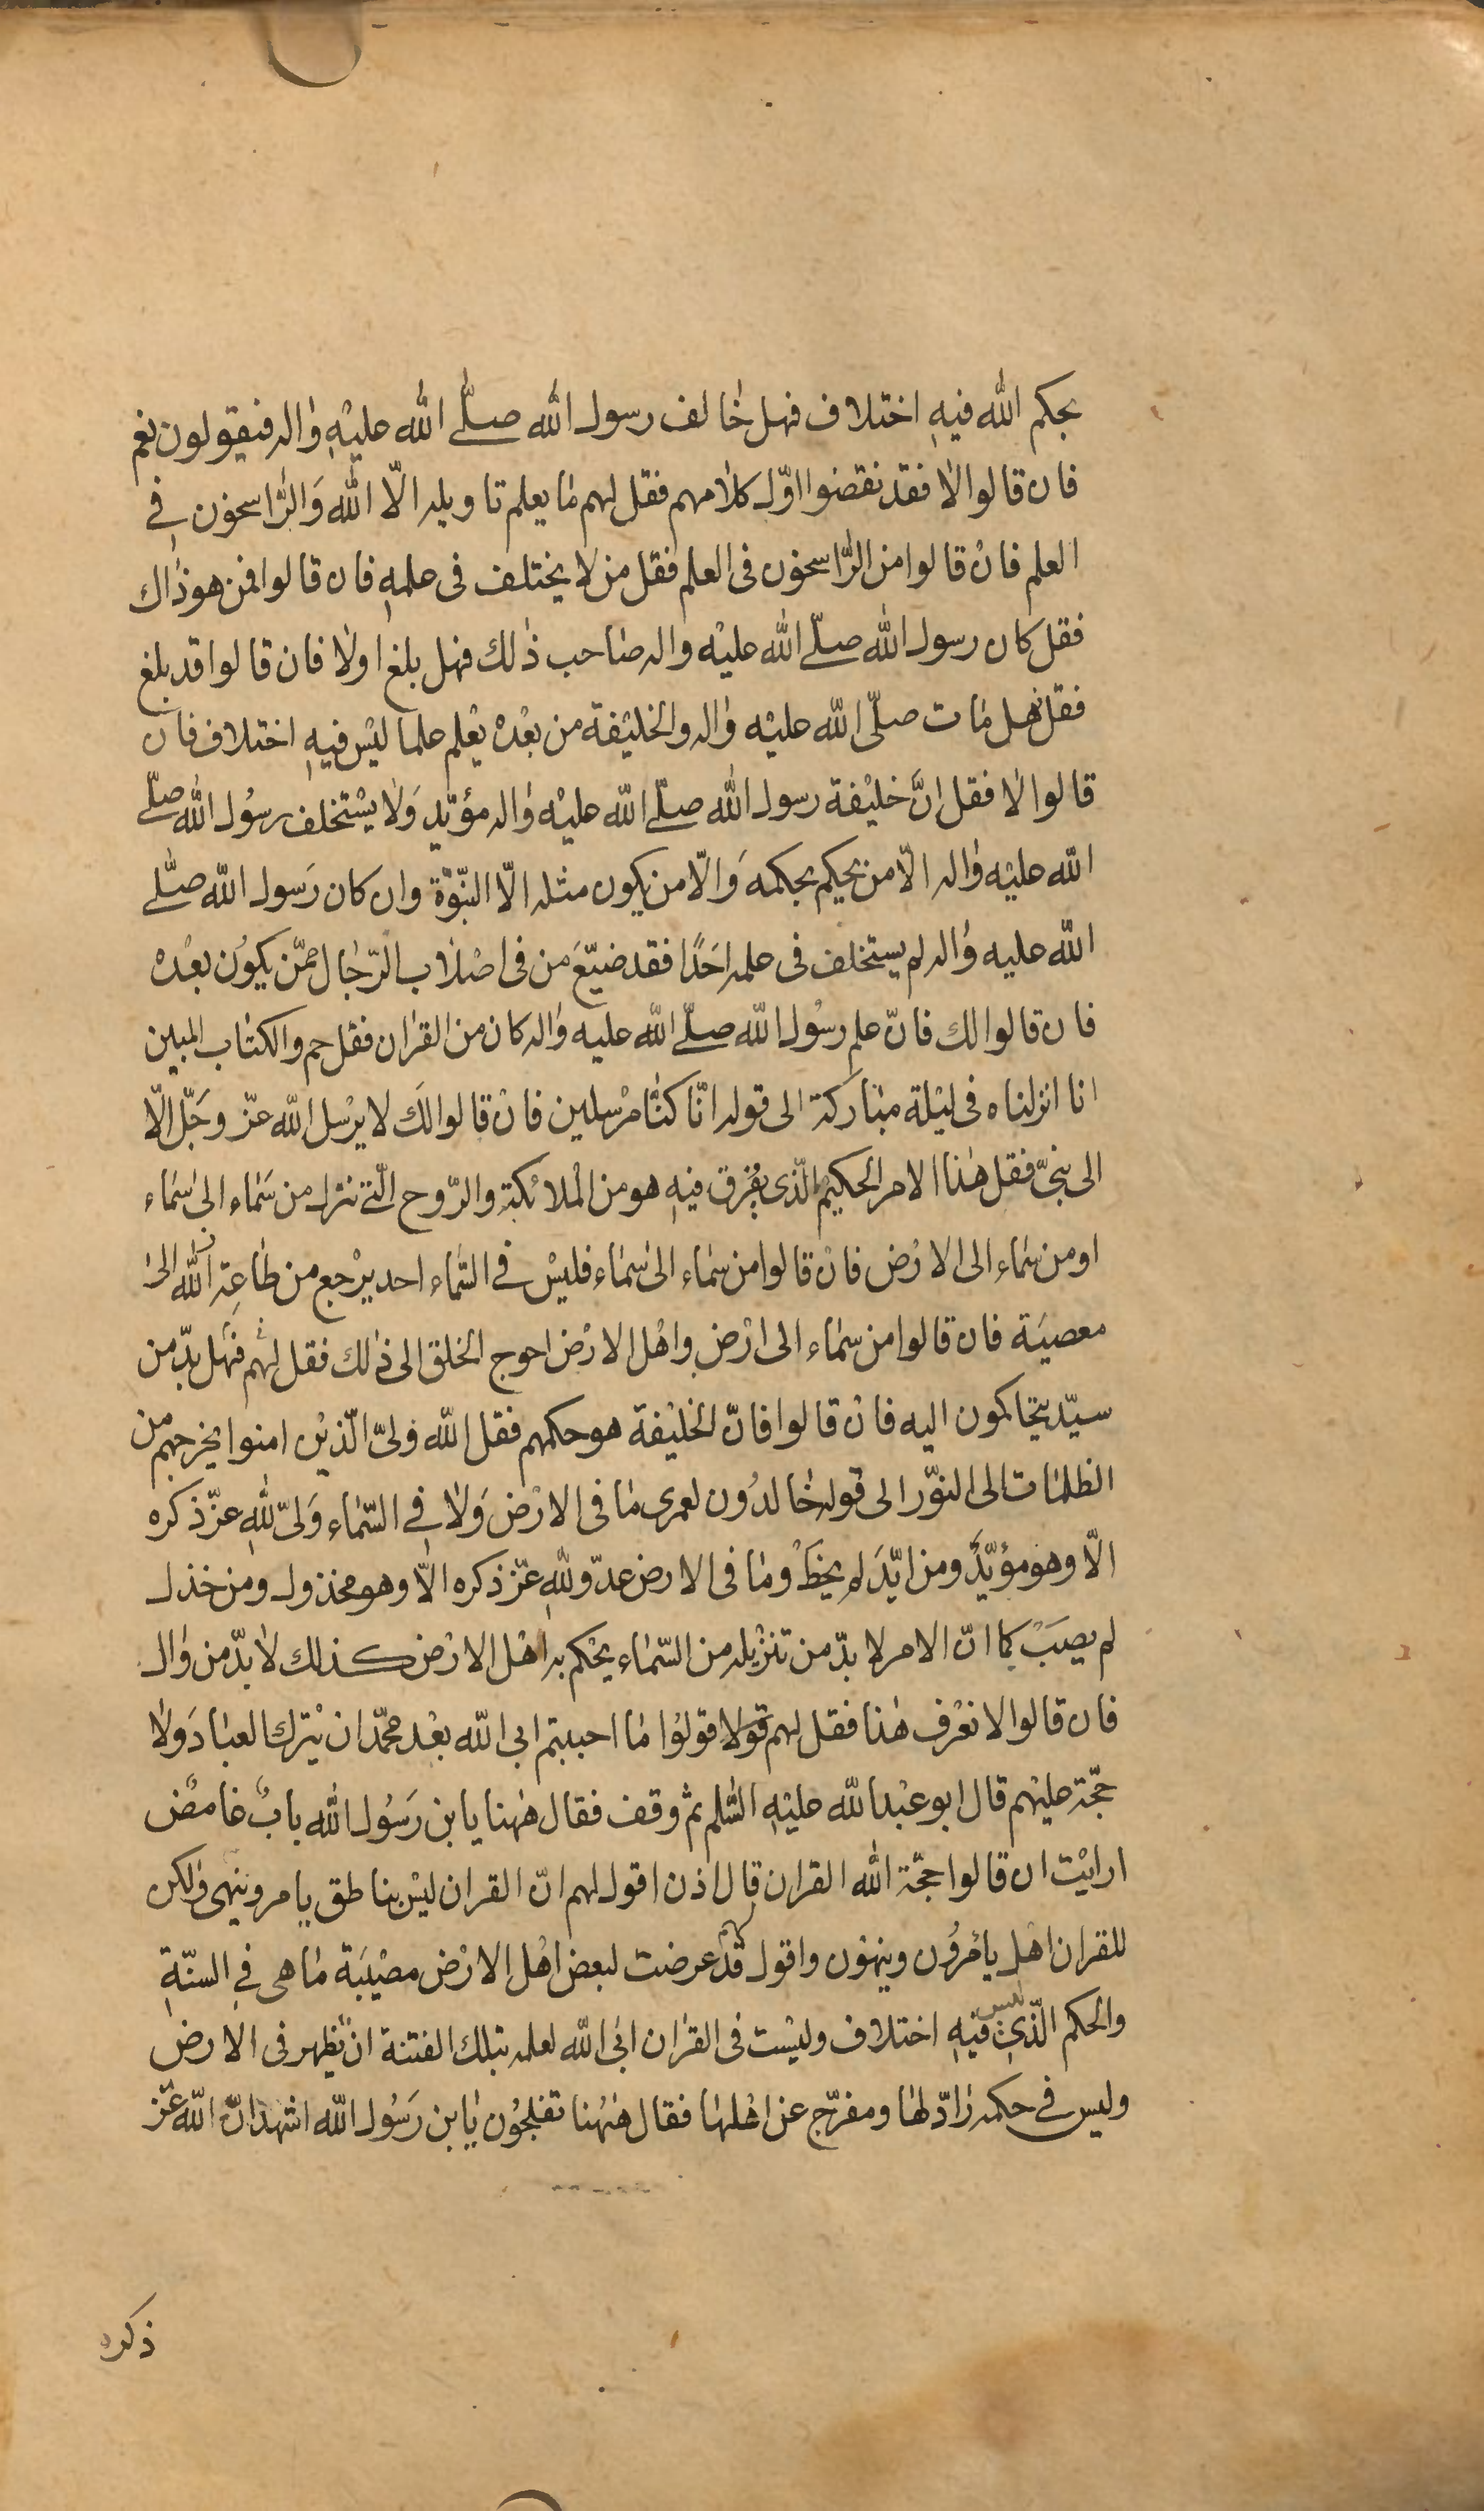 بحكم الله فيهِ اختلاف فهل خٰالف رسول الله صلّى الله عليْهِ وٰاله فيقولون نعم
فان قالوا لا فقد نقضوا اوّل كلامهم فقل لهم مٰا يعلم تاويله الّا الله وَالرّٰاسخون في
العلم فانْ قالوا من الرّٰاسخون فى العلم فقل من لا يختلف فى علمهِ فان قالوا فمن هو ذٰاك
فقل كان رسول الله صلّى الله عليْه واله صٰاحب ذٰلك فهل بلغ اولا فان قالوا قد بلغ
فقل فهل مٰات صلّى الله عليْه وٰاله والخليْفة من بعْدهْ يعْلم علما ليْس فيهِ اختلاف فان
قالوا لٰا فقل انَّ خليْفة رسول الله صلّى الله عليْه وٰاله مؤيّد وَلٰا يسْتخلف رسُول الله صلّى
الله عليْه وٰاله الّا من يحكم بحكمه وَالّا من يكون مثله الّا النّبوّة وان كان رَسول الله صلّى
الله عليه وٰاله لم يستخلف فى علمه احَدًا فقد ضيّعَ من فى اصْلٰاب الرّجٰال ممّن يكوُن بعْدهْ
فان قالوا لك فانّ علم رسُول الله صلّى الله عليه وٰاله كان من القرٰان فقل حم والكتٰاب المبين
انا انزلناه فى ليْلة مبٰاركة الى قوله انّا كنّٰا مرْسلين فانْ قالوا لكَ لا يرْسل الله عزّ وجَلّ الّا
الى نبىّ فقل هٰذا الامر الحكيم الّذى يفْرق فيهِ هو من الْملائكة والرّوح الّتى تنزل من سَمٰاء الىٰ سَمٰاء
او من سَمٰاء الى الارْض فانْ قالوا من سمٰاء الىٰ سَمٰاء فليْس فى السّمٰاء احد يرْجع من طٰاعِة الله الىٰ
معصيَة فان قالوا من سمٰاء الى ارْض واهْل الارْض احوج الخلق الى ذٰلك فقل لهم فهل بدّ من
سيّد يتحٰاكمون اليه فانْ قالوا فانّ الخليْفة هو حكمهم فقل الله ولىّ الّذيْن امنوا يخرجهم من
الظلمٰات الى النوّر الى قوله خٰالدُون لعمرى مٰا فى الارْض وَلٰا فى السّمٰاء وَلىّ للهِ عزّ ذكره
الّا وهو مؤيّدٌ ومن ايّدَ لم يخطَ ومٰا فى الارض عدوّ للهِ عزّ ذكره الّا وهو مخذول ومن خذل
لم يصبَ كما انّ الامر لا بدّ من تنزيْله من السّمٰاء يحْكم به اهْل الارْض كذلك لٰا بدّ من وٰال
فان قالوا لا نعْرف هٰذا فقل لهم قولا قولوُا مٰا احببتم ابى الله بعْد محمّد ان يْترك العبٰادَ ولٰا
حجّة عليْهم قال ابو عبْد الله عليْهِ السّلم ثم وقف فقال هٰهنا يا بن رَسُول الله بابٌ غامضٌ
ارايْت ان قالوا حجّة الله القرٰان قٰال اذن اقول لهم انّ القرٰان ليْس بناطق يامر وينهى ولٰكن
للقرٰان اهْل يامْروُن وينهوْن واقول قدْ عرضت لبعض اهْل الارْض مصيْبَة مٰا هى فى السنّةِ
والحكم الّذى ليس فيْهِ اختلاف وليْست فى القرٰان ابىٰ الله لعلمه بتلك الفتنة انْ تظهر فى الارض
وليس فى حكمه رٰادّ لهٰا ومفرّج عن اهْلهٰا فقال هٰهُنا تفلجوُن يٰا بن رَسُول الله اشهد انّ الله عزّ
ذكره